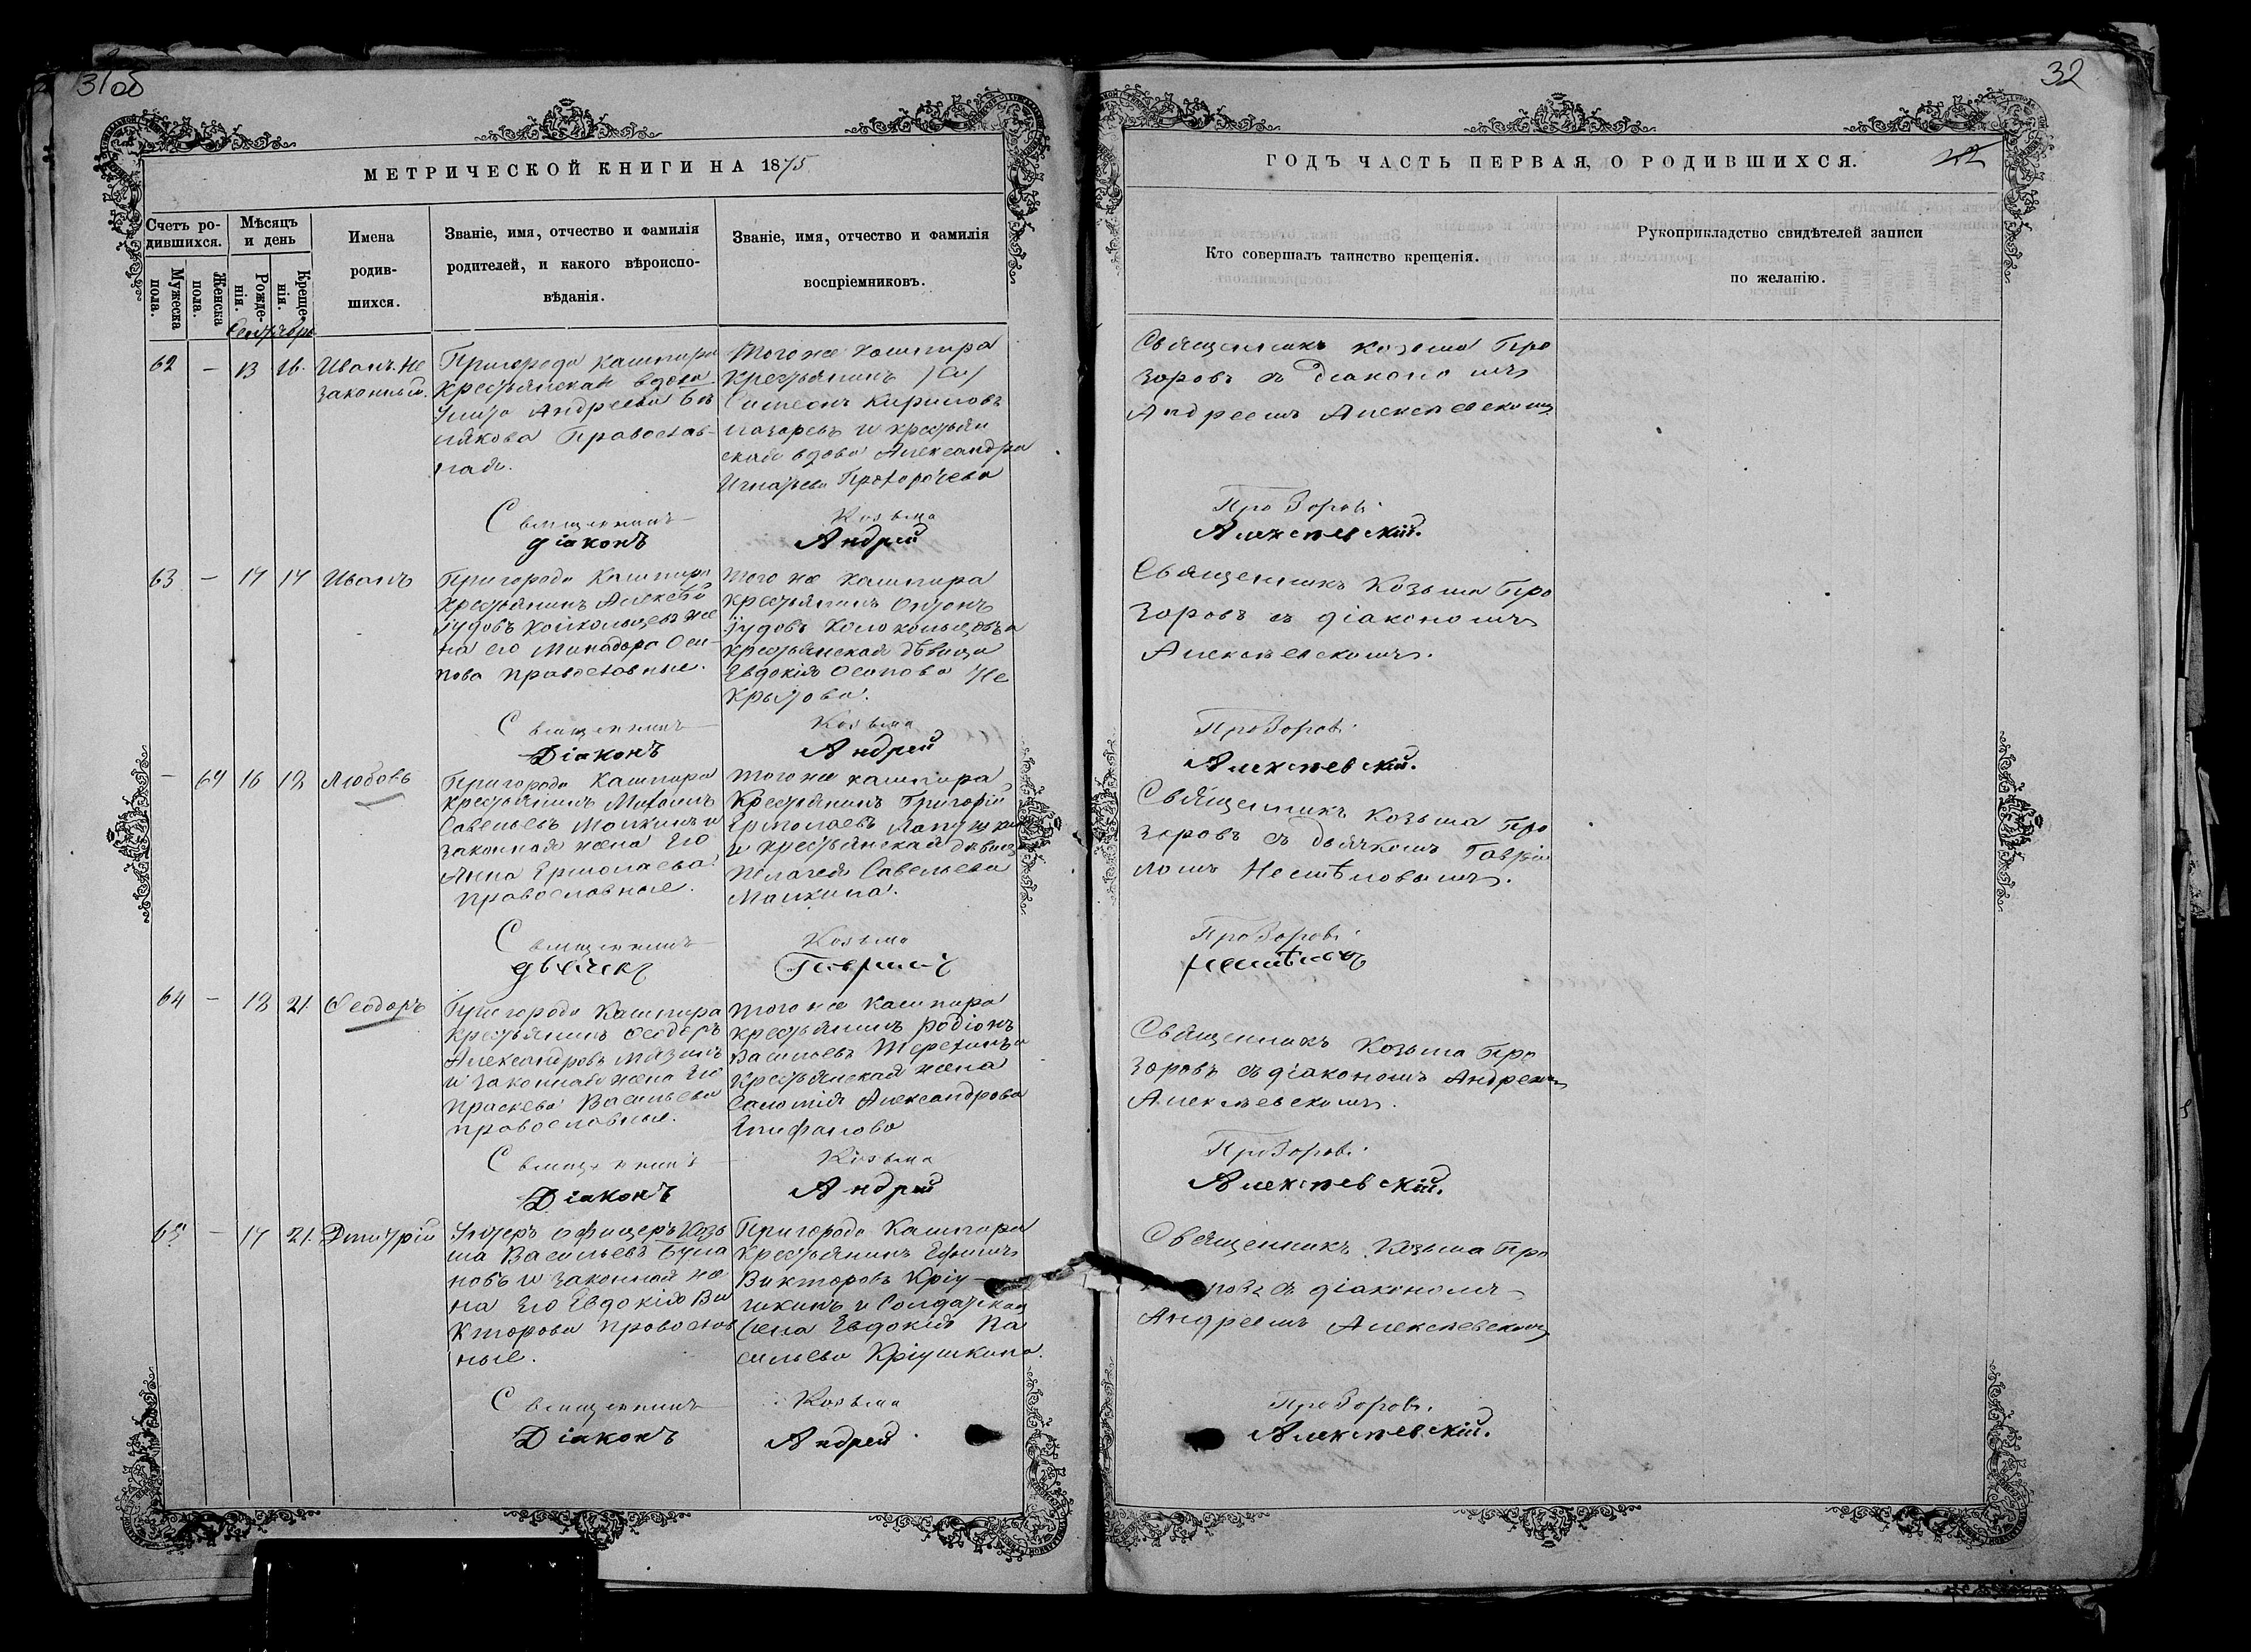 31об
МЕТРИЧЕСКОЙ КНИГИ НА 1875
Счетъ ро-
дившихся.
Мужеска
пола.
Женска
пола.
Мѣсяцъ
и день
Рожде-
нія.
Креще-
нія.
Имена
родив-
шихся.
Званіе, имя, отчество и фамилія
родителей, и какого вѣроиспо-
вѣданія.
Званіе, имя, отчество и фамилія
воспріемниковъ.
Сентябрь
62 — 13 16. Иванъ. Не
законный.
Пригорода Кашпира
крестьянская вдова
Андреева
Православ-
ная.
Того же Кашпира
крестьянинъ
Симеонъ Кириловъ
Назаревъ и крестьян
ская вдова Александра
Игнатьева Прохорочева
Священникъ Козьма
діаконъ Андрей
63 — 14 14 Иванъ
Пригорода Кашпира
крестьянинъ Алексѣй
же
на его Минадора Оси-
пова православные.
Того же Кашпира
крестьянинъ
крестьянская дѣвица
Евдокія Осопова Не
крытова.
Священникъ Козьма
Діаконъ Андрей
— 64 16 18 Любовь
Пригорода Кашпира
крестьянинъ
Савельевъ Молкинъ и
законная жена Его
Анна Ермолаева
православные.
Того же Кашпира
Крестьянинъ Григорій
Ермолаевъ
и крестьянская дѣвица
Пелагея Савельева
Молкина.
Священникъ Козьма
дьячекъ Гаврилъ
64 — 18 21 Феодоръ
Пригорода Кашпира
Крестьянинъ Феодоръ
Александровъ Мязинъ
и законная жена Его
Праскева Васильева
православные.
Того же Кашпира
крестьянинъ Родіонъ
Васильевъ Терехинъ и
Крестьянская жена
Саломія Александрова
Епифанова
Священникъ Козьма
Діаконъ Андрей
65 — 17 21. Дмитрій
Унтеръ офицеръ Козь
ма Васильевъ Була
новъ и законная же
на Его Евдокія Ви
кторова православ
ные.
Пригорода Кашпира
Крестьянинъ Ефимъ
Викторовъ Кріу-
шкинъ и Солдатская
жена Евдокія Ва
сильева Кріушкина.
Священникъ Козьма
Діаконъ Андрей
32
ГОДЪ ЧАСТЬ ПЕРВАЯ, О РОДИВШИХСЯ.
Кто совершалъ таинство крещенія.
Рукоприкладство свидѣтелей записи
по желанію.
Священникъ Козьма Про
зоровъ съ Діакономъ
Андреемъ Алексѣевскимъ
Прозоровъ.
Алексѣевскій.
Священникъ Козьма Про
зоровъ съ діакономъ
Алексѣевскомъ.
Прозоровъ.
Алексѣевскій.
Священникъ Козьма Про
зоровъ съ дьячкомъ Гаврiи
ломъ Несмѣловымъ.
Прозоровъ.
Несмѣловъ
Священникъ Козьма Про
зоровъ съ діакономъ Андреемъ
Алексѣевскомъ.
Прозоровъ.
Алексѣевскій.
Священникъ Козьма Про
ровъ съ діакономъ
Андреемъ Алексѣевскимъ
Прозоровъ.
Алексѣевскій.